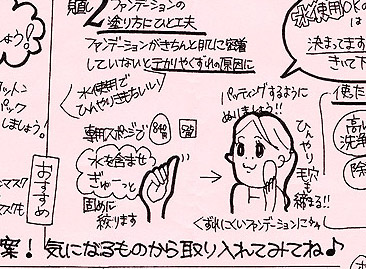 2 ファンデーションの
塗り方にひと工夫
ファンデーションがきちんと肌に密着
していないとテカリやくずれの原因に
水使用で
ひんやりきもちいい
専用スポンジで
水を含ませ
ぎゅーっと
固めに
絞ります
→
パッティングするように
ぬりましょう!!
ひんやり
毛穴も
締まる!!
くずれにくいファンデーションにかわ
水使用OKの
は
決まってます
きいて下
使た
しょう!
ットン
パック
しましょう!
マスク
マスクも
おすすめ
案! 気になるものから取り入れてみてね♪